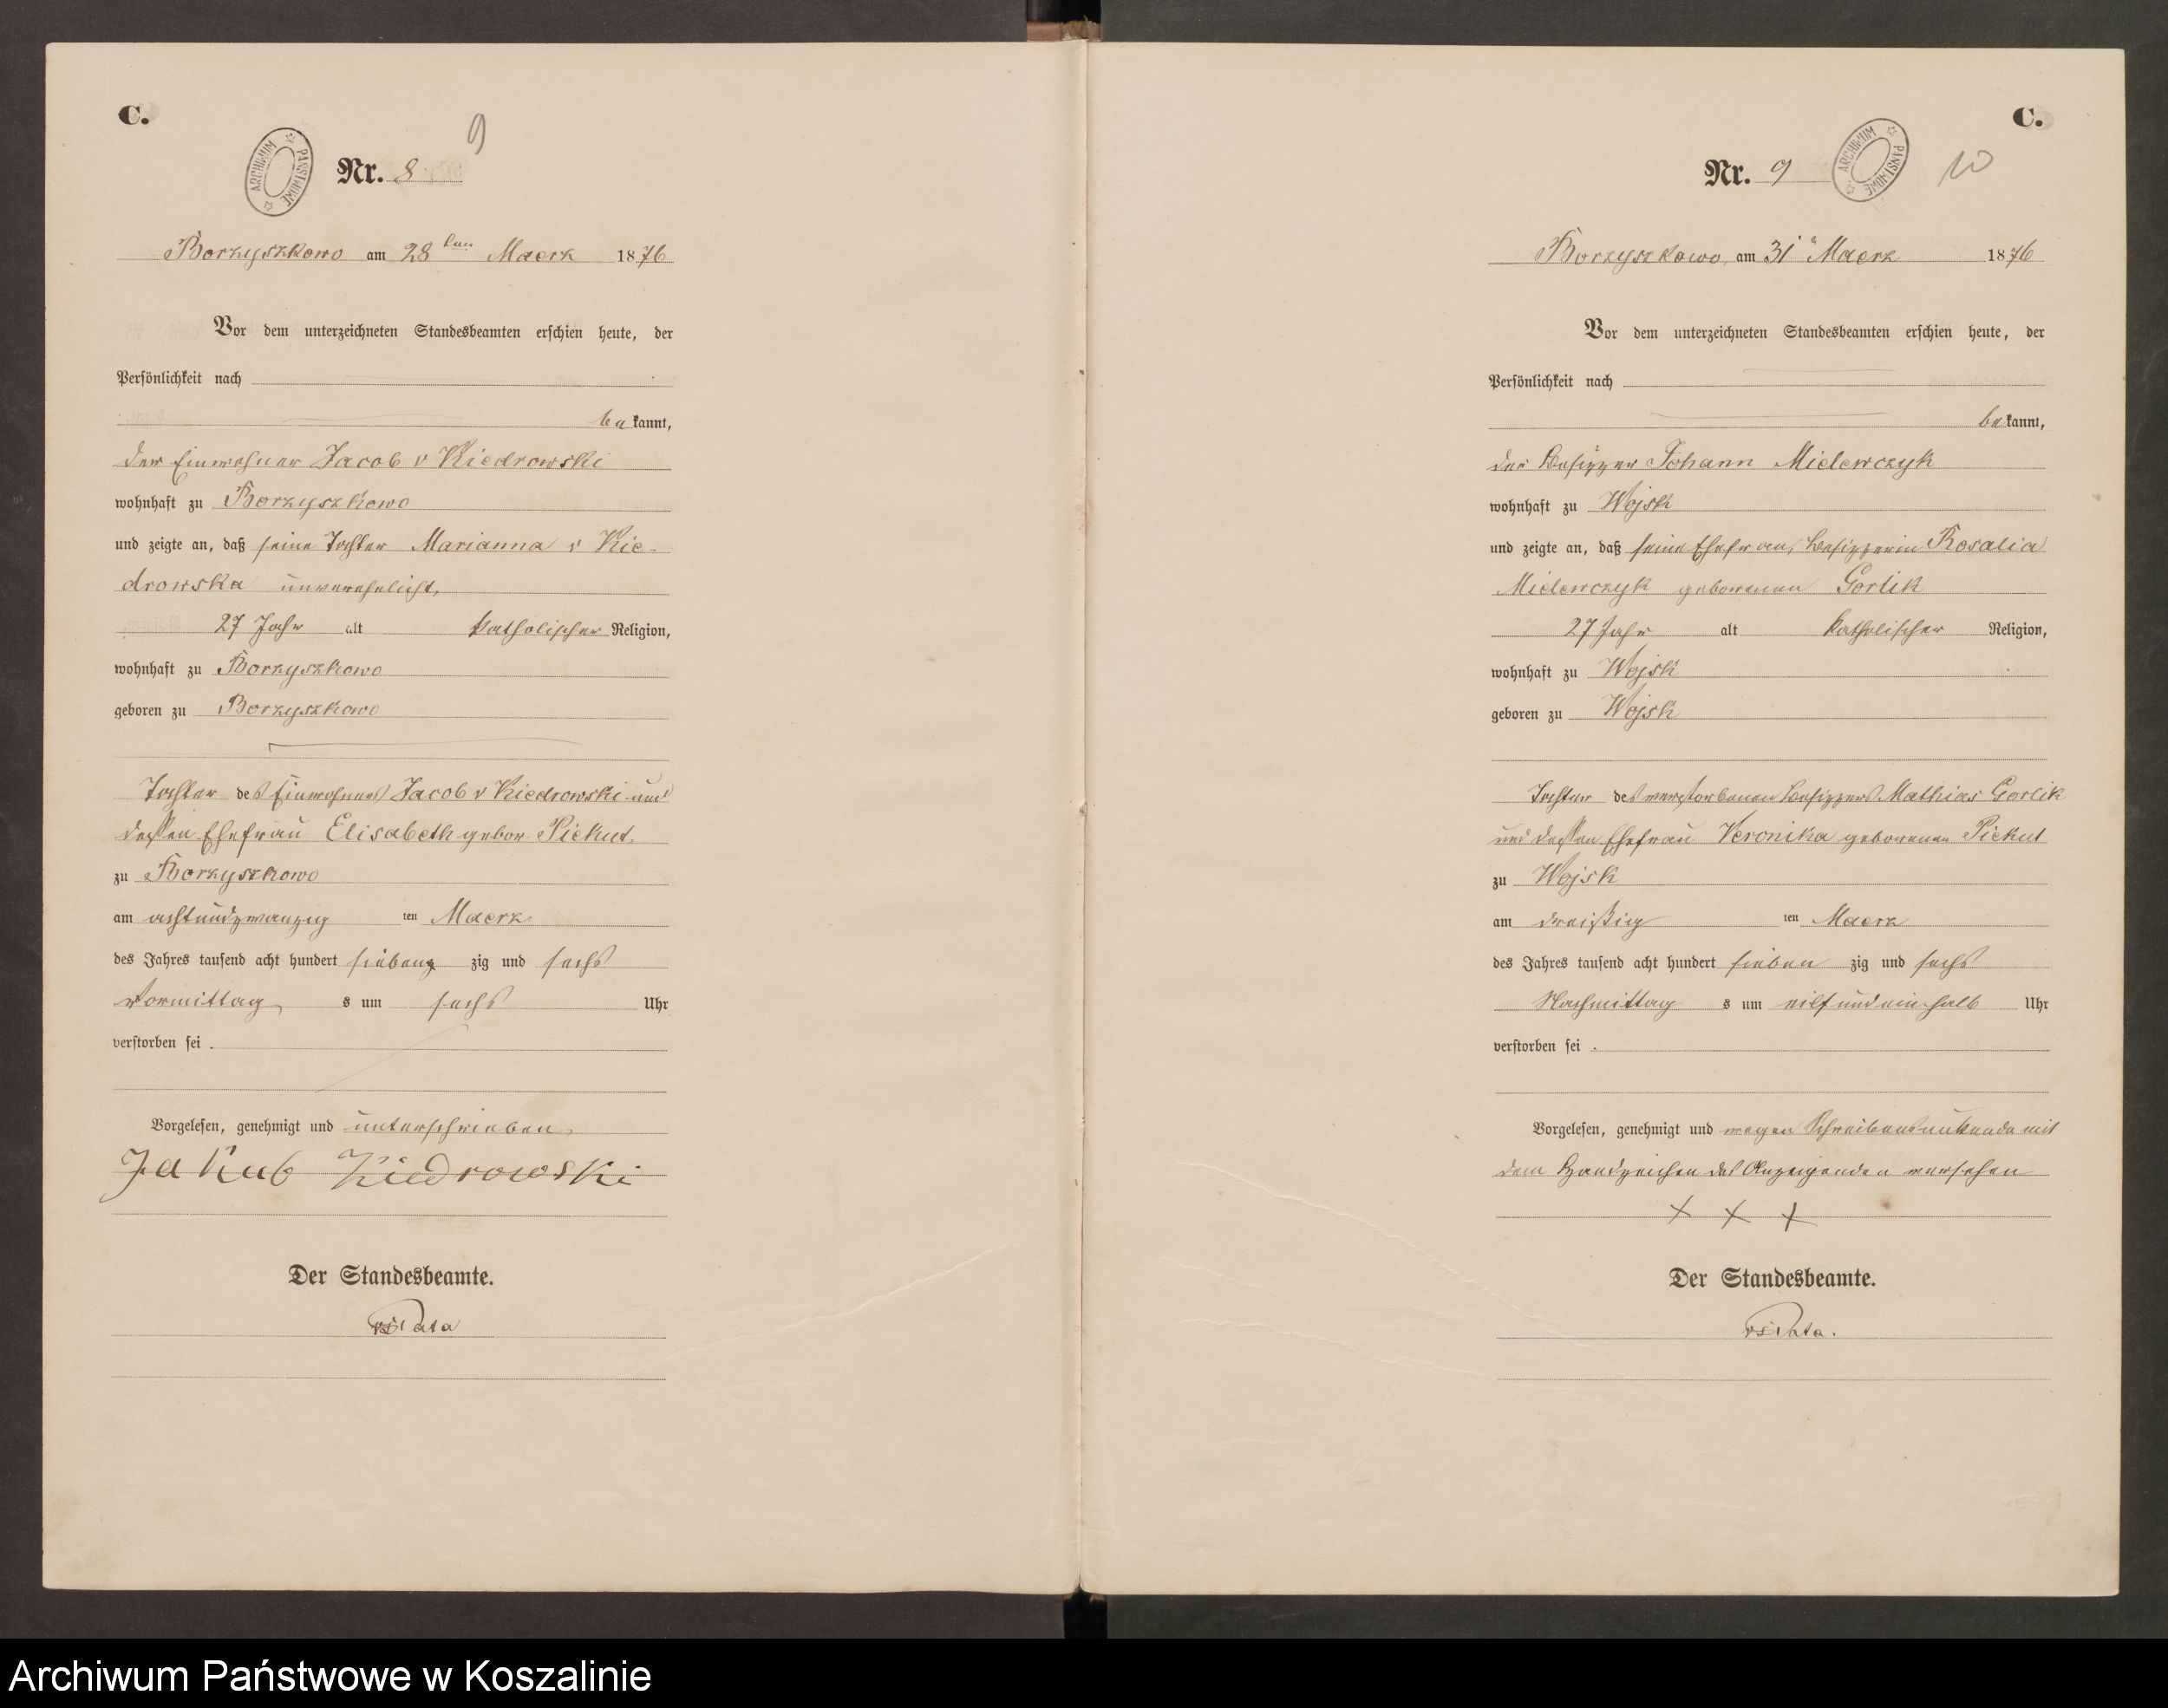 C.
9
ARCHIWUM PAŃSTWOWE
Nr. 8
Borzyszkowo am 28 ten Maerz 1876
Vor dem unterzeichneten Standesbeamten erschien heute, der
Persönlichkeit nach
be kannt,
der Einwohner Jacob v Kiedrowski
wohnhaft zu Borzyszkowo
und zeigte an, daß seine Tochter Marianna v Kie-
drowska unverehelicht,
27 Jahr alt katholischer Religion,
wohnhaft zu Borzyszkowo
geboren zu Borzyszkowo
Tochter des Einwohners Jacob v Kiedrowski und
dessen Ehefrau Elisabeth gebor. Piekut,
zu Borzyszkowo
am achtundzwanzig ten Maerz
des Jahres tausend acht hundert siebenz zig und sechs
Vormittag s um sechs Uhr
verstorben sei .
Vorgelesen, genehmigt und unterschrieben
Jakub Kiedrowski
Der Standesbeamte.
C.
10
ARCHIWUM PAŃSTWOWE
Nr. 9
Borzyszkowo, am 31 Maerz 1876
Vor dem unterzeichneten Standesbeamten erschien heute, der
Persönlichkeit nach
be kannt,
der Besitzer Johann Mielewczyk
wohnhaft zu Wojsk
und zeigte an, daß seine Ehefrau, Besitzerin Rosalia
Mielewczyk geborenen Gorlik
27 Jahr alt katholischer Religion,
wohnhaft zu Wojsk
geboren zu Wojsk
Tochter des verstorbenen Besitzers Mathias Gorlik
und dessen Ehefrau Veronika geborenen Piekut
zu Wojsk
am dreißig ten Maerz
des Jahres tausend acht hundert sieben zig und sechs
Nachmittag s um eilf und ein halb Uhr
verstorben sei .
Vorgelesen, genehmigt und wegen Schreibensunkunde mit
dem Handzeichen des Anzeigenden versehen
+ + +
Der Standesbeamte.
Archiwum Państwowe w Koszalinie